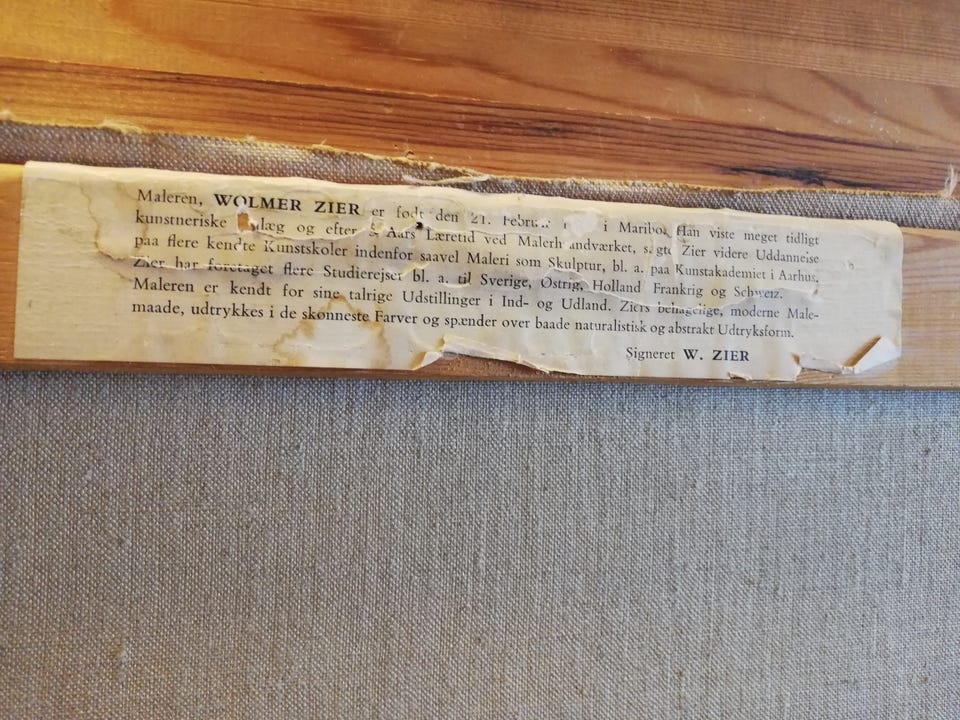 Maleren, WOLMER ZIER er født den 21. i Maribo. Han viste meget tidligt
kunstneriske og efter Aars Læretid ved Zier videre Uddannelse
paa flere kendte Kunstskoler indenfor saavel Maleri som Skulptur, bl. a. paa Kunstakademiet i Aarhus.
Zier har foretaget flere Studierejser bl. a. til Sverige, Østrig, Holland Frankrig og Schweiz.
Maleren er kendt for sine talrige Udstillinger i Ind- og Udland. Ziers behagelige, moderne Male-
maade, udtrykkes i de skønneste Farver og spænder over baade naturalistisk og abstrakt Udtryksform.
Signeret W. ZIER